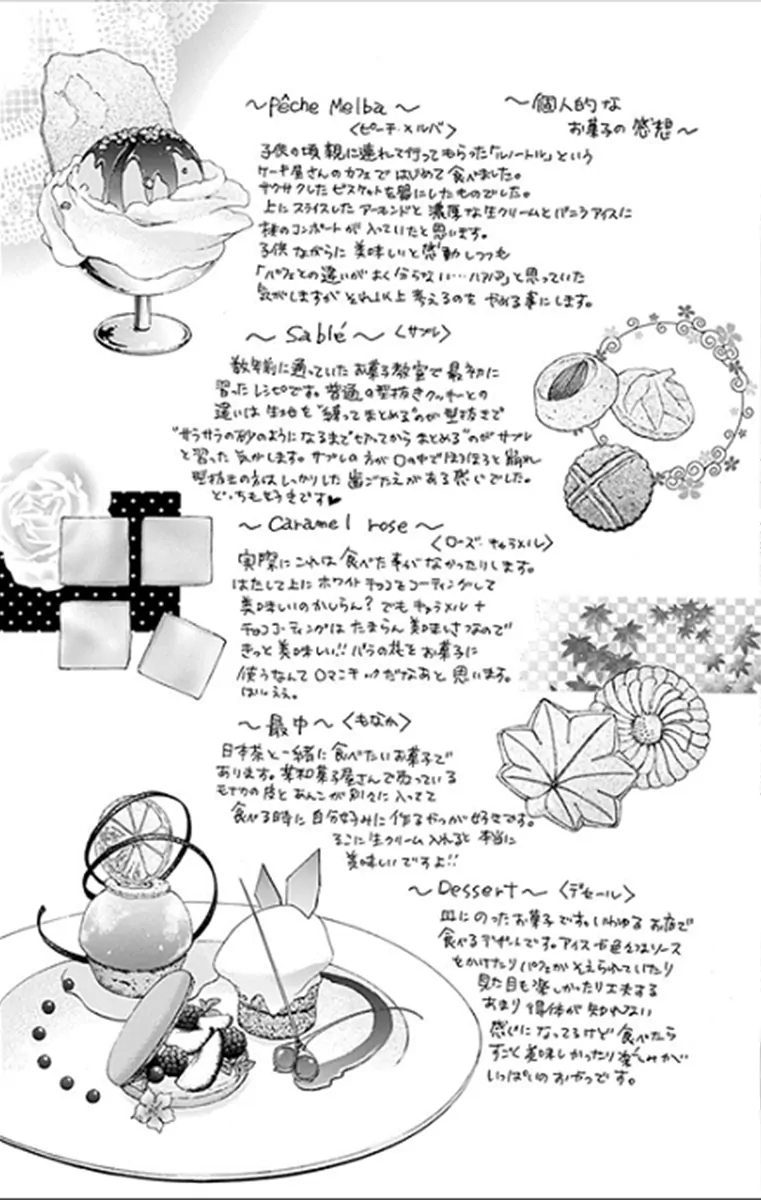 ～個人的な
お菓子の感想～
～Pêche Melba～
〈ピーチ・メルバ〉
子供の頃親に連れて行ってもらった「ルノートル」という
ケーキ屋さんのカフェではじめて食べました。
サクサクしたビスケットを器にしたものでした。
上にスライスしたアーモンドと濃厚な生クリームとバニラアイスに
桃のコンポートが入っていたと思います。
子供ながらに美味しいと感動しつつも
「パフェとの違いがよく分らない…ハァハァ」と思っていた
気がしますがそれ以上考えるのをやめる事にします。
～Sablé～〈サブレ〉
数年前に通っていたお菓子教室で最初に
習ったレシピです。普通の型抜きクッキーとの
違いは生地を"練ってまとめる"のが型抜きで
"サラサラの砂のようになるまで切ってからまとめる"のがサブレ
と習った気がします。サブレの方が口の中でほろほろと崩れ
型抜きの方はしっかりした歯ごたえがある感じでした。
どっちも好きです♥
～Caramel rose～
〈ローズ・キャラメル〉
実際にこれは食べた事がなかったりします。
はたして上にホワイトチョコをコーティングして
美味しいのかしらん？でもキャラメル＋
チョココーティングはたまらん美味しさなので
きっと美味しい!!バラの花をお菓子に
使うなんてロマンチックだなあと思います。
はぅぅぅ。
～最中～〈もなか〉
日本茶と一緒に食べたいお菓子で
あります。某和菓子屋さんで売っている
モナカの皮とあんこが別々に入ってて
食べる時に自分好みに作るやつが好きです。
そこに生クリーム入れると本当に
美味しいですよ!!
～Dessert～〈デセール〉
皿にのったお菓子です。いわゆるお店で
食べるデザートです。アイスや色々なソース
をかけたりパフェがそえられていたり
見た目も楽しかったり工夫する
あまり得体が知れない
感じになってるけど食べたら
すごく美味しかったり楽しみが
いっぱいのおやつです。